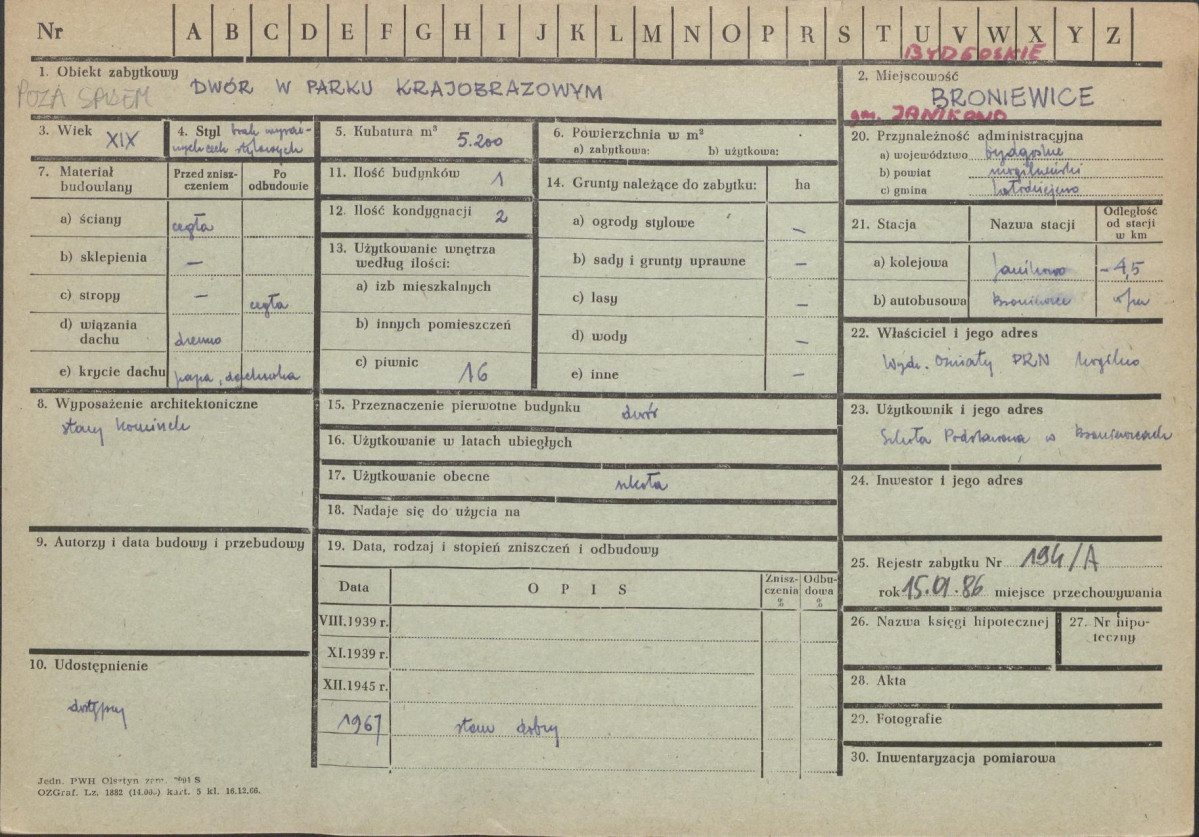 Nr A B C D E F G H I J K L M N O P R S T U V W X Y Z
BYDGOSKIE
1. Obiekt zabytkowy
POZA SPISEM DWÓR W PARKU KRAJOBRAZOWYM
2. Miejscowość
BRONIEWICE
gm. JANIKOWO
3. Wiek XIX
4. Styl brak wyraź-
nych cech stylowych
5. Kubatura m³ 5.200
6. Powierzchnia w m²
a) zabytkowa: b) użytkowa:
7. Materiał budowlany
Przed znisz-
czeniem
Po
odbudowie
a) ściany cegła
b) sklepienia –
c) stropy – cegła
d) wiązania
dachu drewno
e) krycie dachu papa, dachówka
8. Wyposażenie architektoniczne
stary kominek
9. Autorzy i data budowy i przebudowy
10. Udostępnienie
dostępny
11. Ilość budynków 1
12. Ilość kondygnacji 2
13. Użytkowanie wnętrza
według ilości:
a) izb mieszkalnych
b) innych pomieszczeń
c) piwnic 16
14. Grunty należące do zabytku: ha
a) ogrody stylowe –
b) sady i grunty uprawne –
c) lasy –
d) wody –
e) inne –
15. Przeznaczenie pierwotne budynku dwór
16. Użytkowanie w latach ubiegłych
17. Użytkowanie obecne szkoła
18. Nadaje się do użycia na
19. Data, rodzaj i stopień zniszczeń i odbudowy
Data OPIS
Znisz-
czenia
%
Odbu-
dowa
%
VIII.1939 r.
XI.1939 r.
XII.1945 r.
1967 stan dobry
20. Przynależność administracyjna
a) województwo bydgoskie
b) powiat mogileński
c) gmina
21. Stacja Nazwa stacji
Odległość
od stacji
w km
a) kolejowa Janikowo – 4,5
b) autobusowa Broniewice
22. Właściciel i jego adres
Wydz. Oświaty PRN Mogilno
23. Użytkownik i jego adres
Szkoła Podstawowa w Broniewicach
24. Inwestor i jego adres
25. Rejestr zabytku Nr 194/A
rok 15.01.86 miejsce przechowywania
26. Nazwa księgi hipotecznej
27. Nr hipo-
teczny
28. Akta
29. Fotografie
30. Inwentaryzacja pomiarowa
Jedn. PWH Olsztyn
OZGraf. Lz. 1882 (14.000) kart. 3 kl. 16.12.66.